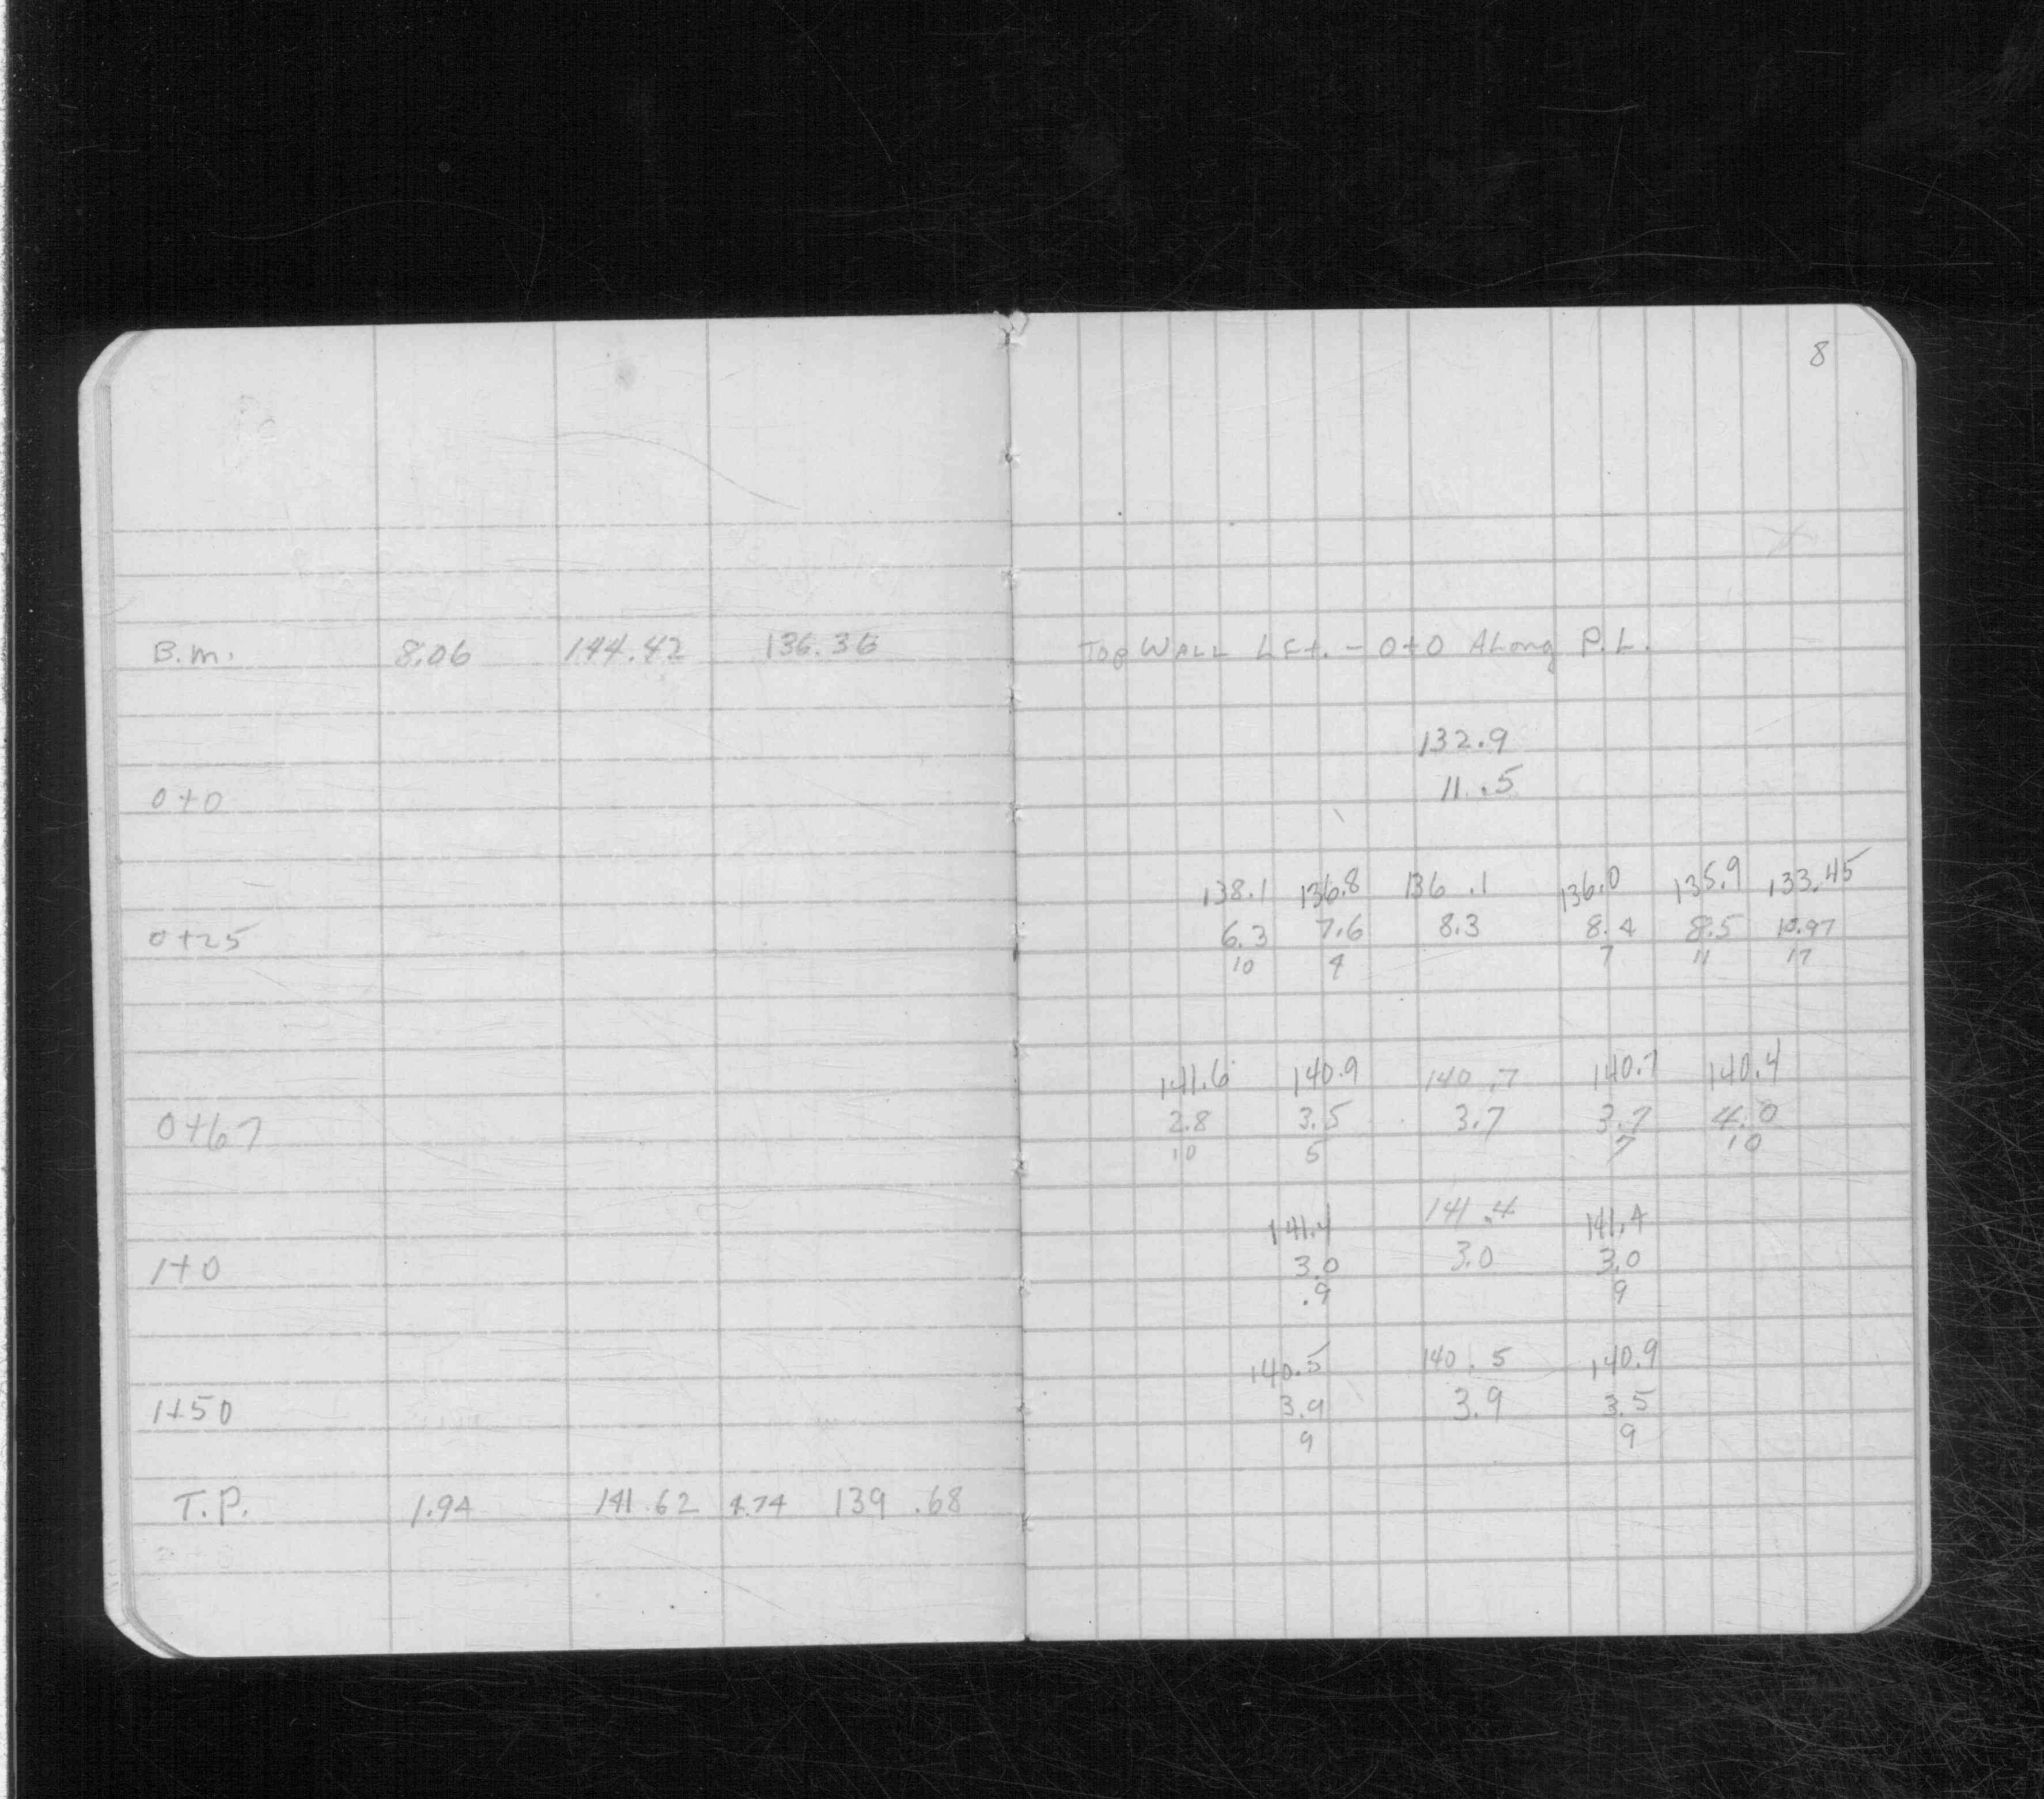 8
B.M. 8.06 144.42 136.36 Top WALL Lft. - 0+0 ALong P.L.
132.9
0+0 11.5
138.1 136.8 136.1 136.0 135.9 133.45
0+25 6.3 7.6 8.3 8.4 8.5 10.97
10 4 7 11 17
141.6 140.9 140.7 140.7 140.4
0+67 2.8 3.5 3.7 3.7 4.0
10 5 7 10
141.4 141.4 141.4
1+0 3.0 3.0 3.0
.9 9
140.5 140.5 140.9
1+50 3.9 3.9 3.5
9 9
T.P. 1.94 141.62 4.74 139.68